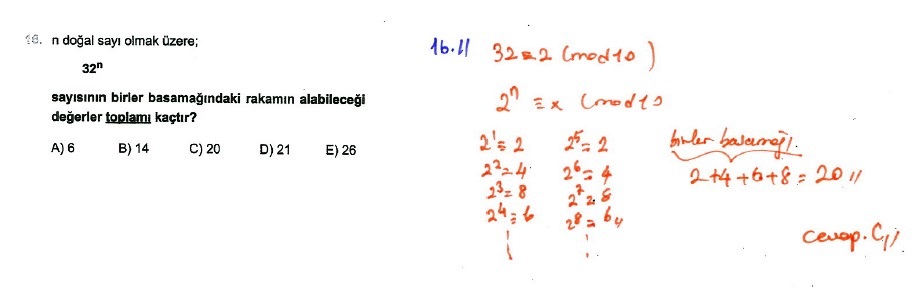 16. n doğal sayı olmak üzere;
32ⁿ
sayısının birler basamağındaki rakamın alabileceği
değerler toplamı kaçtır?
A) 6 B) 14 C) 20 D) 21 E) 26
16.//
32≡2 (mod10)
2ⁿ ≡ x (mod10
2¹≡ 2 2⁵= 2
2²=4 2⁶= 4
2³= 8 2⁷= 8
2⁴≡ 6 2⁸= 6//
birler basamağı.
2+4+6+8 = 20//
cevap. C//